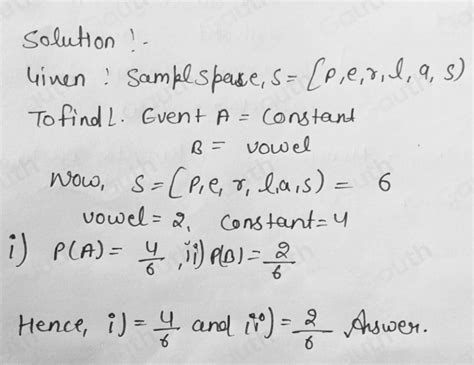 Solution !-
Given : Sampl spase, S = [P, e, r, l, a, s)
To find L. Event A = Constant
B = vowel
Now, S = (P, e, r, l, a, s) = 6
vowel = 2, Constant = 4
i) P(A) = 4/6, ii) P(B) = 2/6
Hence, i) = 4/6 and ii) = 2/6 Answer.